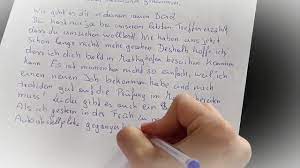 Wie geht es dir in deinem neuen Dorf?
Du hast mir ja bei unserem letzten Treffen erzählt,
dass du umziehen wolltest. Wir haben uns jetzt
schon lange nicht mehr gesehen. Deshalb hoffe ich,
dass ich dich bald in besuchen kommen
kann. Es ist momentan nicht so einfach, weil ich
einen neuen Job bekommen habe und mich
trotzdem gut auf die Prüfung im vorbereiten
muss! Leider gibt es auch ein
Als ich gestern in der Früh zu m
Autoabstellplatz gegangen